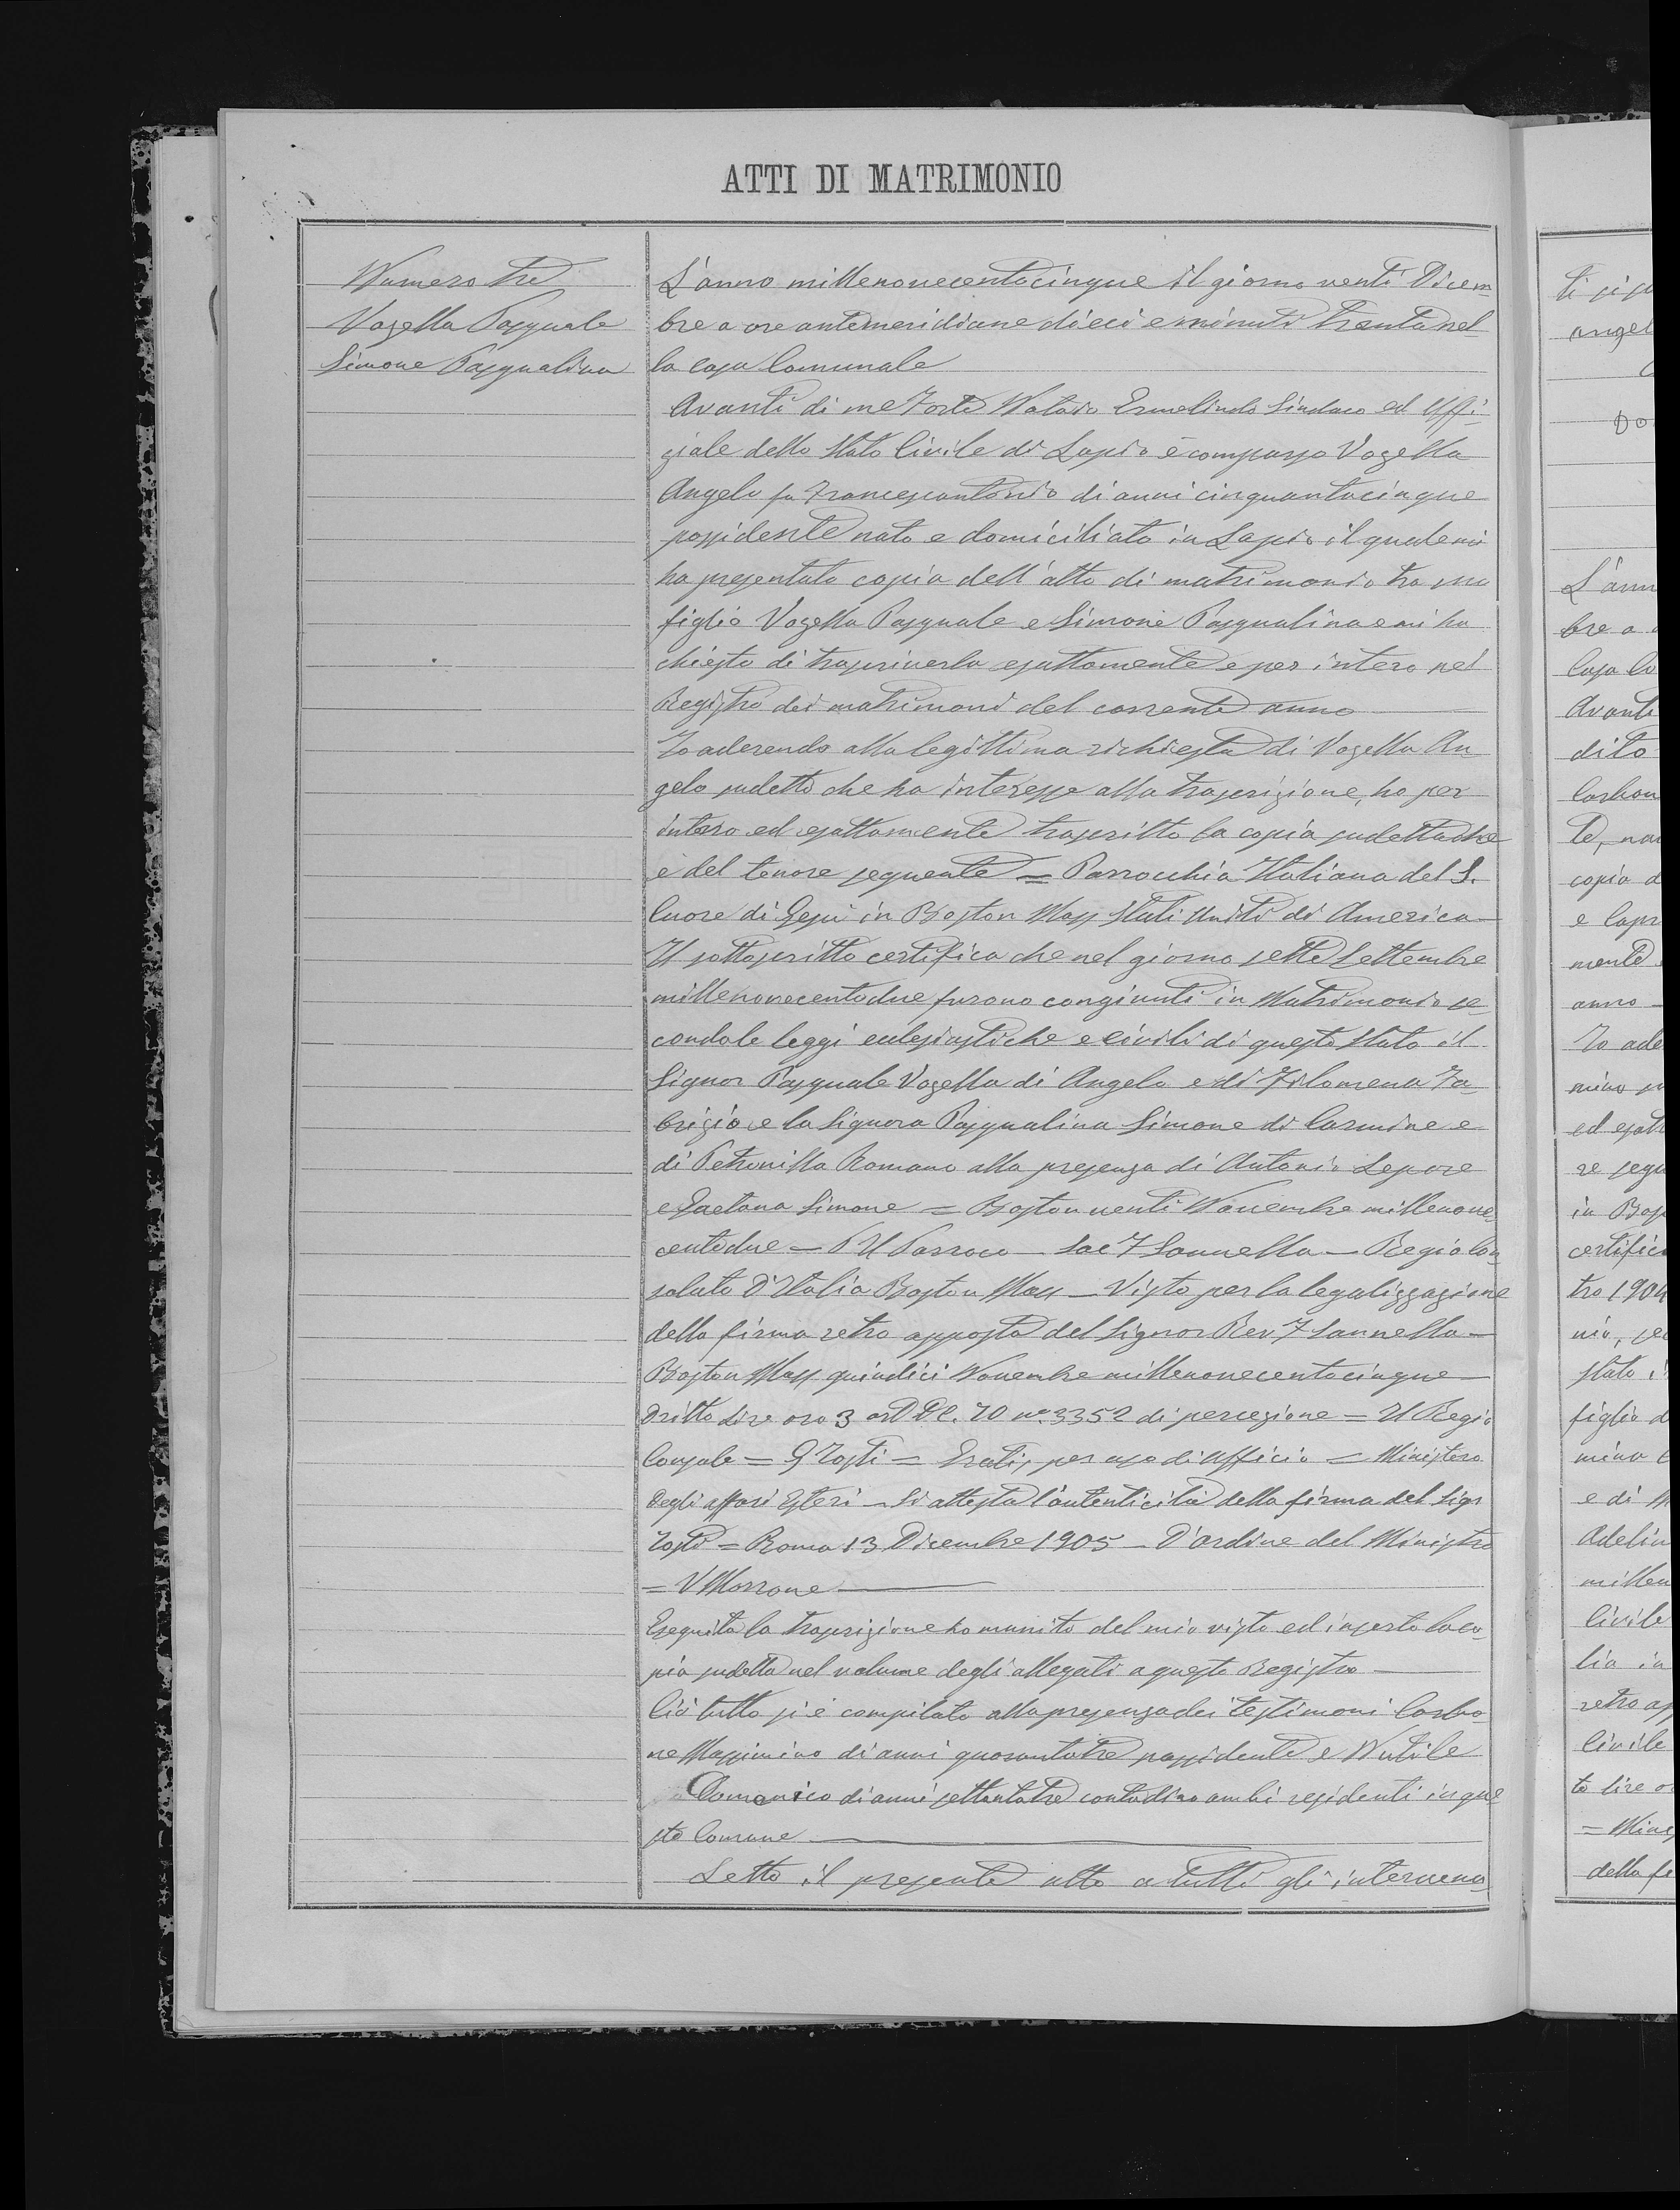 ATTI DI MATRIMONIO
Numero tre
Vozella Pasquale
Simone Pasqualina
L'anno millenovecentocinque il giorno venti Dicem-
bre a ore antimeridiane dieci e minuti trenta nel-
la casa Comunale
Avanti di me Forte Notaio Ermelindo Sindaco ed Uffi-
ziale dello Stato Civile di Lapio è comparso Vozella
Angelo fu Francescantonio di anni cinquantacinque
possidente nato e domiciliato in Lapio il quale mi
ha presentato copia dell'atto di matrimonio tra suo
figlio Vozella Pasquale e Simone Pasqualina e mi ha
chiesto di trascriverla esattamente e per intero nel
Registro dei matrimoni del corrente anno
Io aderendo alla legittima richiesta di Vozella An-
gelo sudetto che ha interesse alla trascrizione, ho per
intero ed esattamente trascritto la copia sudetta che
è del tenore seguente = Parrocchia Italiana del S.
Cuore di Gesù in Boston Mass Stati Uniti di America —
Il sottoscritto certifica che nel giorno sette Settembre
millenovecentodue furono congiunti in Matrimonio se-
condo le leggi ecclesiastiche e civili di questo Stato il
Signor Pasquale Vozella di Angelo e di Filomena Fa-
brizio e la Signora Pasqualina Simone di Carmine e
di Petronilla Romano alla presenza di Antonio Lepore
e Gaetana Simone = Boston venti Novembre millenove-
centodue — Il Parroco — Sac F Sannella — Regio Con-
solato D'Italia Boston Mass — Visto per la legalizzazione
della firma retro apposta del Signor Rev F Sannella —
Boston Mass quindici Novembre millenovecentocinque —
Dritto Lire oro 3 art 70 n° 3352 di percezione = Il Regio
Console = G Tosti = Gratis per uso di ufficio = Ministero
Degli affari Esteri — Si attesta l'autenticità della firma del Sigr
Tosti = Roma 13 Dicembre 1905 — D'ordine del Ministro
= V Morrone
Eseguita la trascrizione ho munito del mio visto ed inserto la co-
pia sudetta nel volume degli allegati a questo Registro
Ciò tutto si è compilato alla presenza dei testimoni Carbo-
ne Massimino di anni quarantatre possidente e Nutile
Domenico di anni settantatre contadino ambi residenti in que-
sto Comune
Letto il presente atto a tutti gli intervenu-
angel
Do
L'ann
bre a
Casa Co
Avanti
dito
Carbon
te, na
copia d
e Capr
mente
anno —
Io ade
mino su
ed esatt
re segu
in Bos
certific
tro 1904
nio, se
stato i
figlio d
mina
e di M
Adelin
millen
Civile
lia in
retro ap
Civile
to lire o
= Minis
della fi